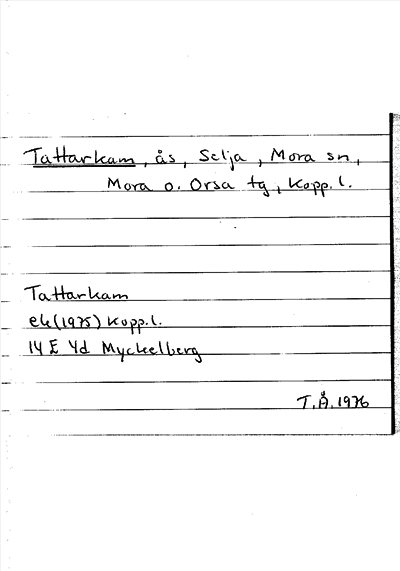 Tattarkam, ås, Selja, Mora sn,
Mora o. Orsa tg, Kopp. l.
Tattarkam
ek (1975) Kopp. l.
14 E 4d Myckelberg
T.Å. 1976